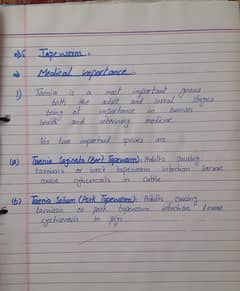 Tapeworm.
Medical importance.
1) Taenia is a most important genus
both the adult and larval stages
being of importance in human
health and veterinary medicine
Its two important species are
(a) Taenia Saginata (Beef Tapeworm): Adults causing
taeniasis or beef tapeworm infection larvae
cause cysticercosis in cattle
(b) Taenia Solium (Pork Tapeworm): Adults causing
taeniasis or pork tapeworm infection larvae
cysticercosis in pigs